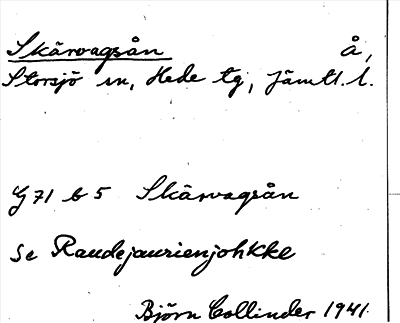 Skärvagsån å,
Storsjö sn, Hede tg, Jämtl. l.
G 71 b 5 Skärvagsån
Se Raudejaurienjohkke
Björn Collinder 1941.